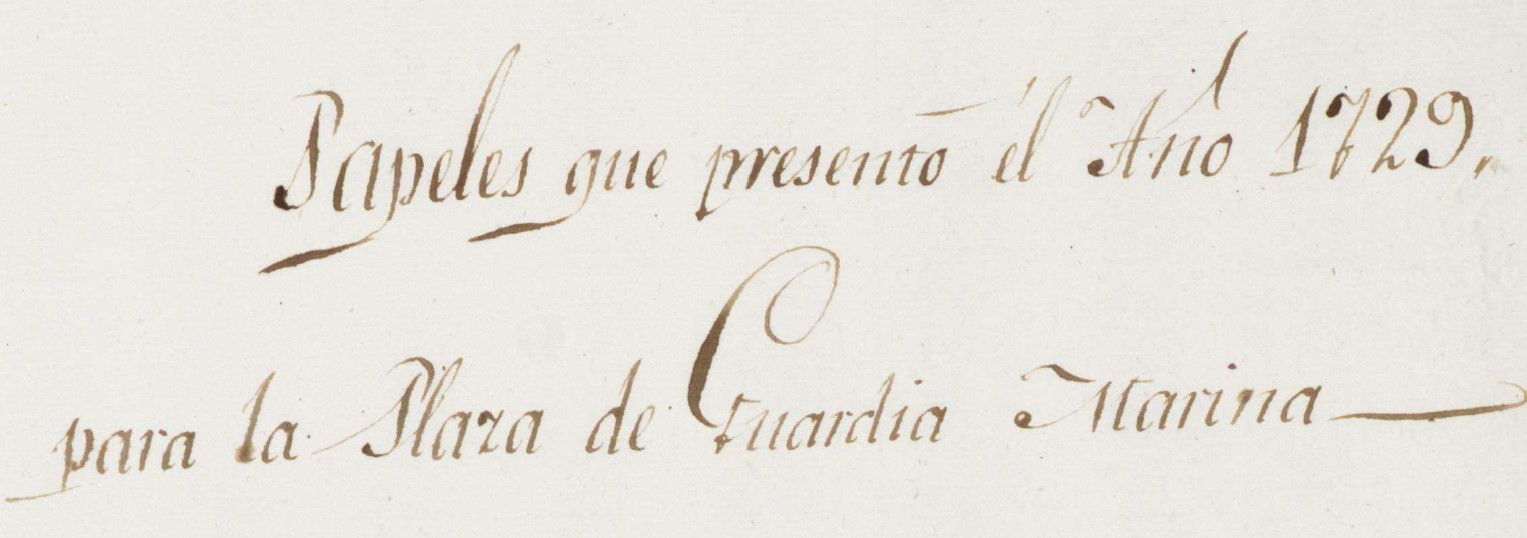 Papeles que presentó él Año 1729.
para la Plaza de Guardia Marina